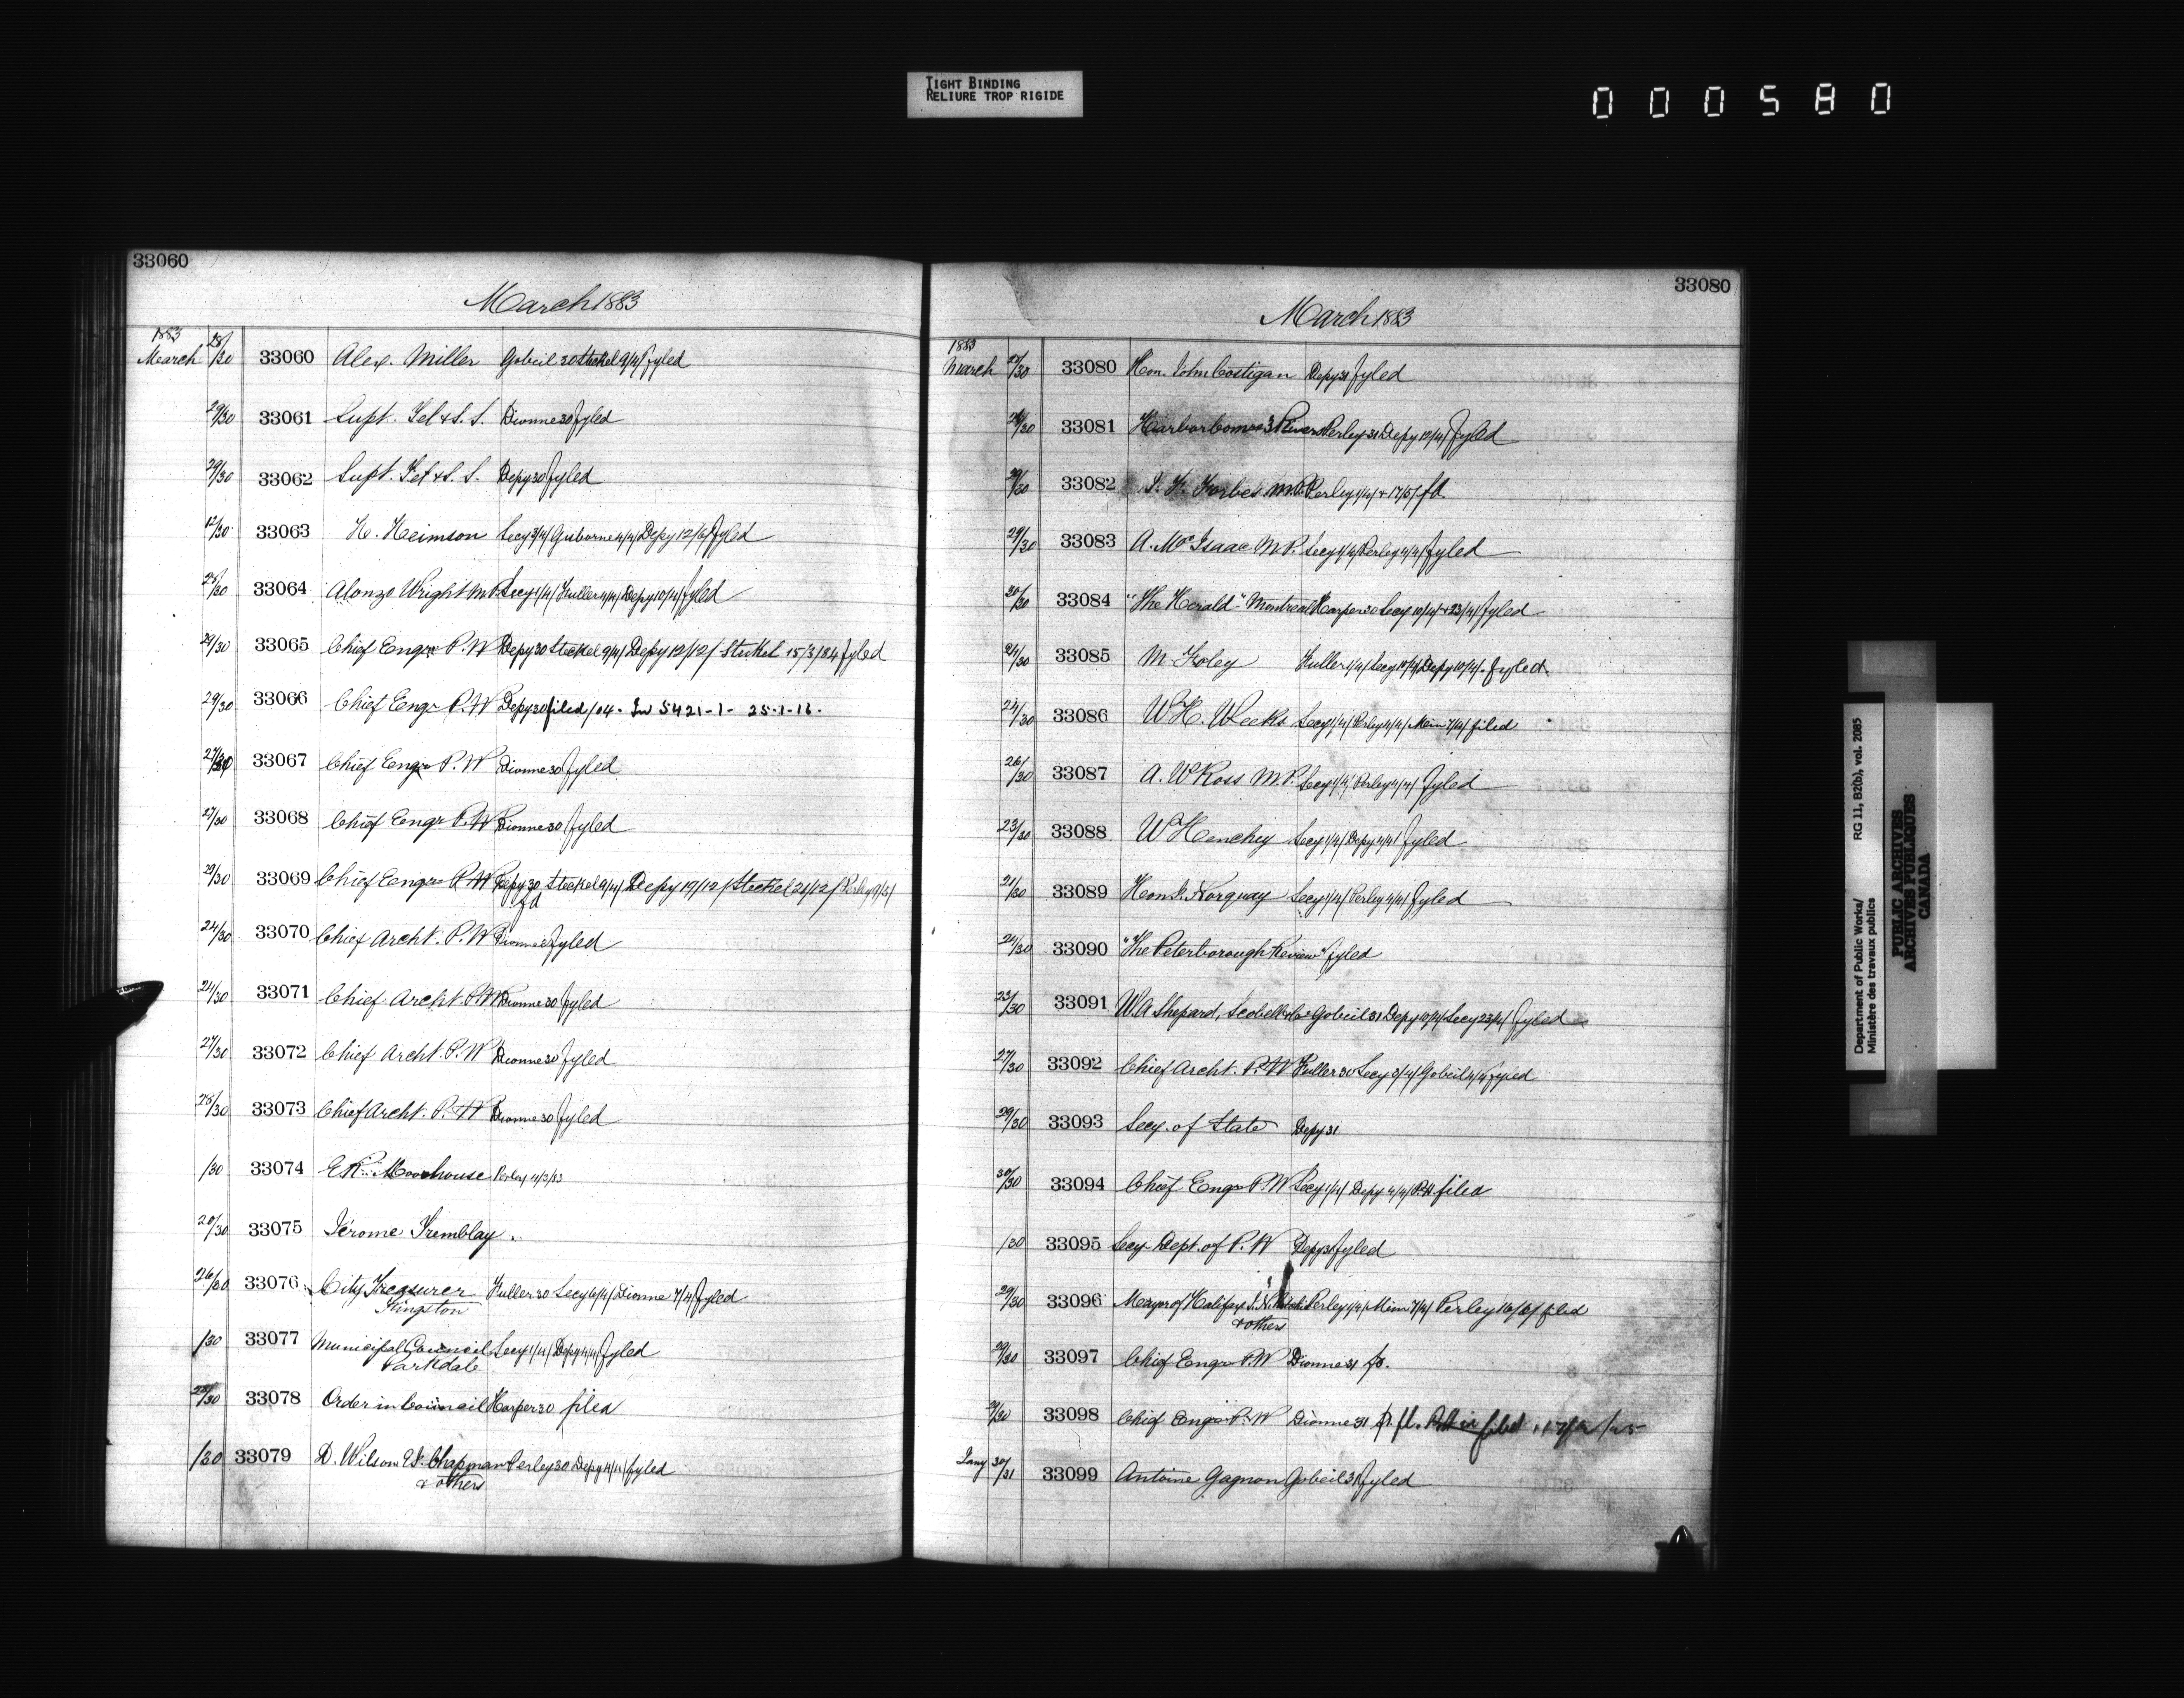 TIGHT BINDING
RELIURE TROP RIGIDE
000580
33060
March 1883
1883
March 28/30 33060 Alex. Miller Gobeil 30 Steckel 9/4/ fyled
29/30 33061 Supt. Tel & S. S. Dionne 30 fyled
29/30 33062 Supt. Tel & S. S. Depy 30 fyled
12/30 33063 H. Heimson Secy 3/4/ Gisborne 4/4/ Depy 12/6/ fyled
25/30 33064 Alonzo Wright M.P. Secy 1/4/ Fuller 4/4/ Depy 10/4/ fyled
29/30 33065 Chief Engr P. W Depy 30 Steckel 9/4/ Depy 12/12/ Steckel 15/3/84 fyled
29/30 33066 Chief Engr P. W Depy 30 filed /04. In 5421-1- 25-1-16.
27/30 33067 Chief Engr P. W Dionne 30 fyled
27/30 33068 Chief Engr P. W Dionne 30 fyled
29/30 33069 Chief Engr P. W Depy 30 Steckel 9/4/ Depy 19/12/ Steckel 21/12/ Perley 9/3/
fd
24/30 33070 Chief Archt. P. W Dionne fyled
24/30 33071 Chief Archt P. W Dionne 30 fyled
27/30 33072 Chief Archt. P. W Dionne 30 fyled
28/30 33073 Chief Archt. P. W Dionne 30 fyled
/30 33074 E R Moorhouse Perley 11/3/83
20/30 33075 Jérome Tremblay.
26/30 33076 City Treasurer Fuller 30 Secy 6/4/ Dionne 7/4/ fyled
Kingston
/30 33077 Municipal Council Secy 1/4/ Depy 4/4/ fyled
Parkdale
28/30 33078 Order in Council Harper 30 filed
/30 33079 D. Wilson Chapman Perley 30 Depy fyled
& others
33080
March 1883
1883
March /30 33080 Hon. John Costigan Depy 31 fyled
/30 33081 Harbor Comrs 3 Rivers Perley 31 Depy 12/4/ fyled
29/30 33082 Forbes M.P. Perley 1/4/ + 17/5/ fd.
29/30 33083 A. McIsaac M.P. Secy 1/4/ Perley 4/4/ fyled
30/30 33084 "The Herald" Montreal Harper 30 Secy 10/4/ + 23/4/ fyled
24/30 33085 M. Foley Fuller 1/4/ Secy Depy 10/4/. fyled.
24/30 33086 W. H. Weeks Secy 1/4/ Perley 4/4/ Mem 7/4/ filed
26/30 33087 A. W Ross M.P. Secy 1/4/ Perley 4/4/ fyled
23/30 33088 W Henchey Secy 1/4/ Depy 4/4/ fyled
21/30 33089 Hon. J. Norquay Secy 1/4/ Perley 4/4/ fyled
24/30 33090 "The Peterborough Review" fyled
23/30 33091 W. A Shepard, Scobell & Co Gobeil 31 Depy 10/4/ Secy 23/4/ fyled
27/30 33092 Chief Archt. P. W Fuller 30 Secy 3/4/ Gobeil 4/4 fyled
29/30 33093 Secy. of State Depy 31
30/30 33094 Chief Engr P. W Secy 1/4/ Depy 4/4/ filed
/30 33095 Secy Dept. of P. W Depy 31 fyled
29/30 33096 Mayor of Halifax Perley 1/4/ Mem 7/4/ Perley 16/6/ filed
& others
29/30 33097 Chief Engr P. W Dionne 31 fd.
/30 33098 Chief Engr P. W Dionne 31
Jany 30/31 33099 Antoine Gagnon Gobeil 31 fyled
Department of Public Works/ RG 11, B2(b), vol. 2085
Ministère des travaux publics
PUBLIC ARCHIVES
ARCHIVES PUBLIQUES
CANADA